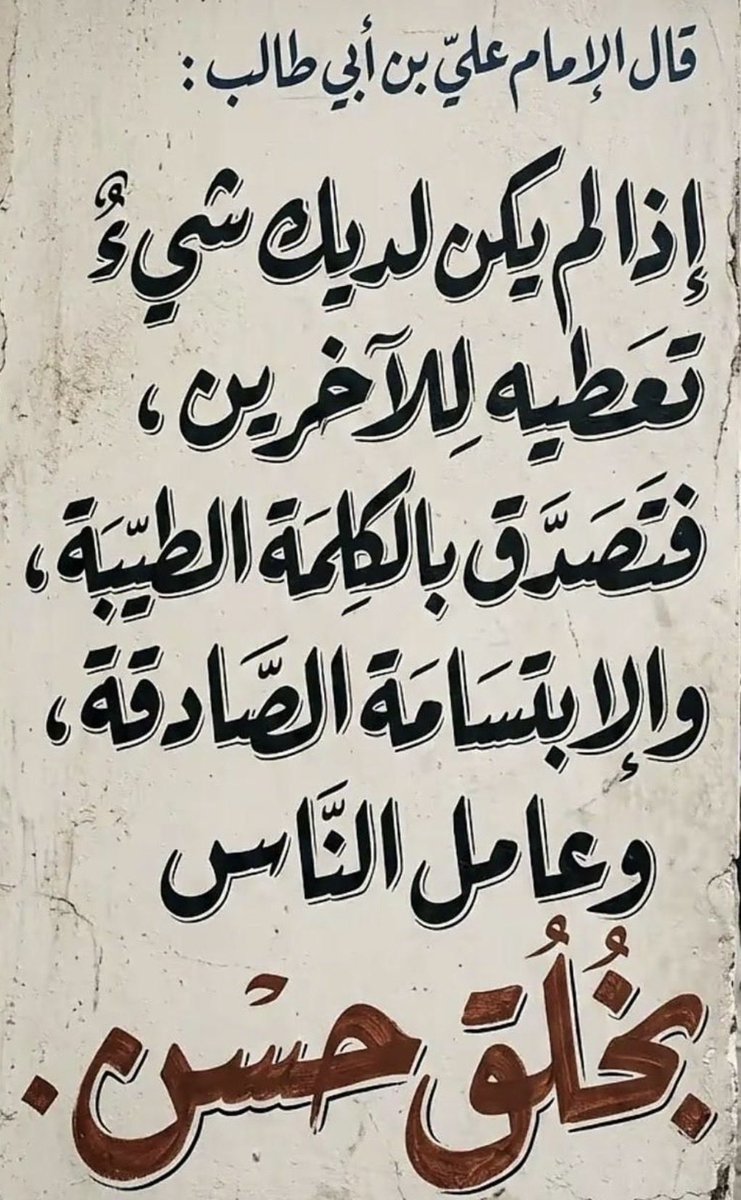 قال الإمام عليّ بن أبي طالب :
إذا لم يكن لديك شيءٌ
تعَطيه لِلآخرين ،
فتَصَدَّق بالكلِمَة الطيّبَة ،
والإبتسَامَة الصَّادقة ،
وعامل النَّاس
بخُلُق حسْن .